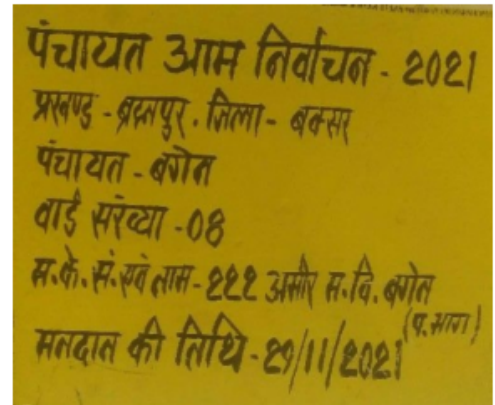 पंचायत आम निर्वाचन - 2021
प्रखण्ड - ब्रह्मपुर . जिला - बक्सर
पंचायत - बगेन
वार्ड संख्या - 08
म.के.सं.एवं नाम - 222 म.वि. बगेन
(प. भाग)
मतदान की तिथि - 29/11/2021